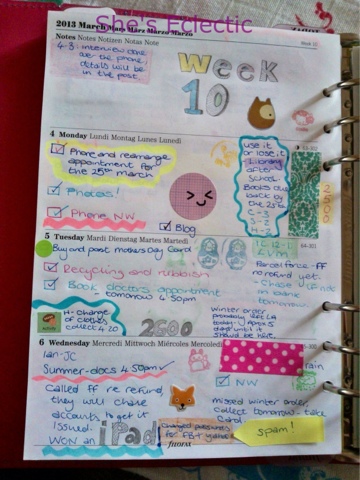 She's Eclectic
2013 March Mars März Marzo Marzo
Notes Notes Notizen Notas Note
Week 10
4-3: interview done
over the phone,
details will be
in the post.
Week
10
4 Monday Lundi Montag Lunes Lunedì
63-302
Phone and rearrange
appointment for
the 25th march
Photos!
Phone NW
Blog
use it
or lose it
Library
after
school.
Books due
back by
the 25th
C-3
S-5
H-2
2500
5 Tuesday Mardi Dienstag Martes Martedì
64-301
Buy and post mothers Day Card
Recycling and rubbish
Book doctors appointment
- tomorrow 4:50pm
H-Change
of clothes
collect 4:20
2600
Parcel force - FF
no refund yet.
- Chase up node
in bank
tomorrow
Winter order
probably
today
should be
here.
6 Wednesday Mercredi Mittwoch Miércoles Mercoledì
Ian-JC
Summer-docs 4:50pm
Called FF re refund,
they will chase
accounts to get it
issued.
Won an iPad
rain
NW
missed winter order
collect tomorrow - take
card.
Changed pictures
for FB + 
filofax
spam!